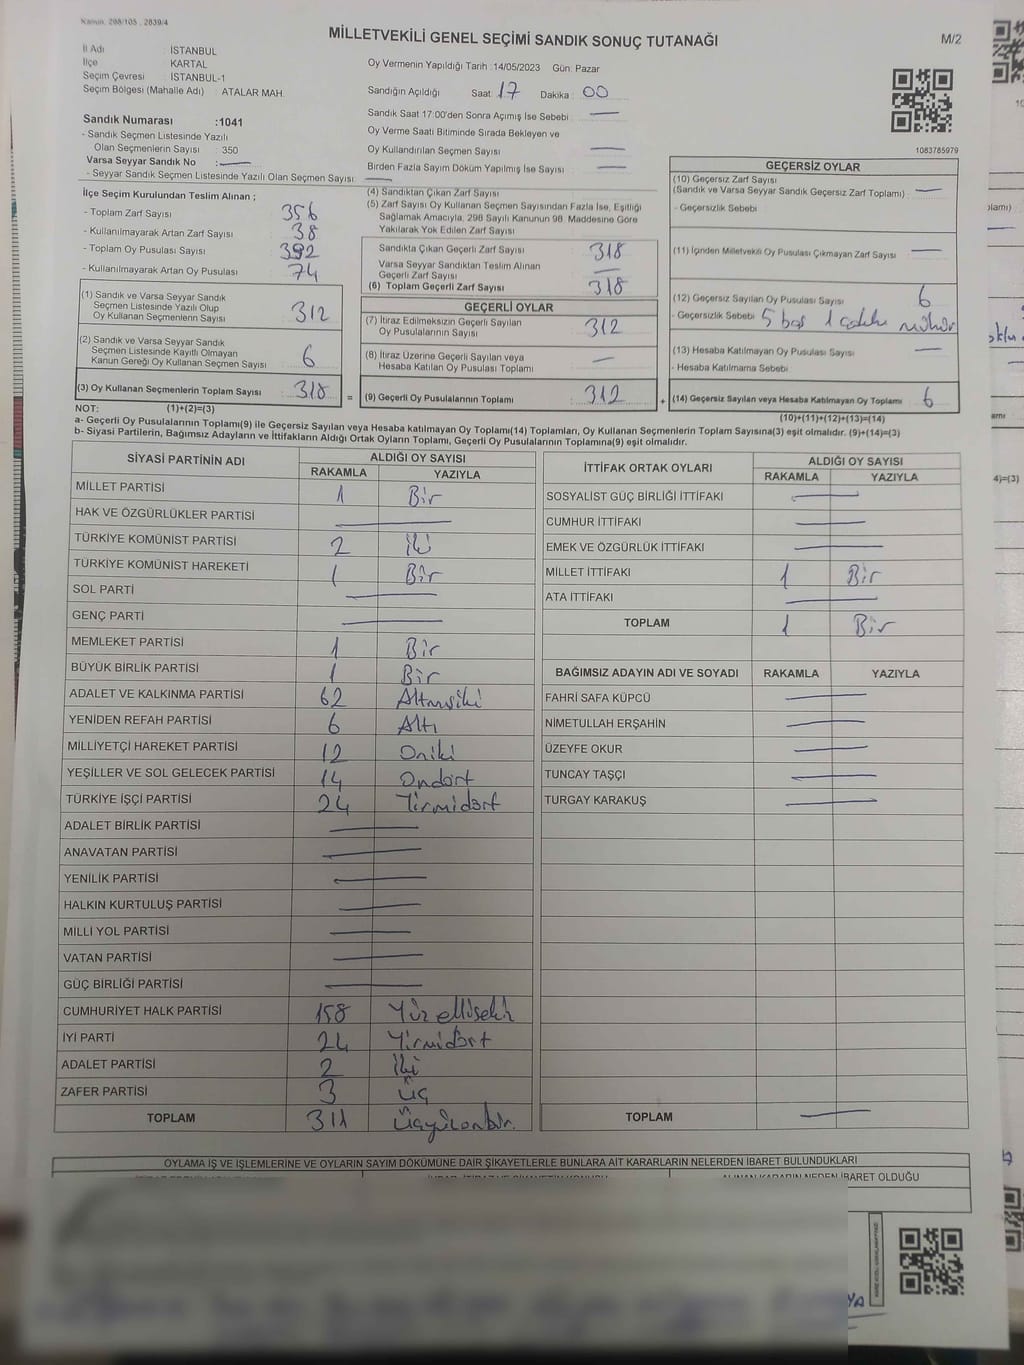 Kanun. 298/105 , 2839/4
MİLLETVEKİLİ GENEL SEÇİMİ SANDIK SONUÇ TUTANAĞI
M/2
İl Adı : İSTANBUL
İlçe : KARTAL
Seçim Çevresi : İSTANBUL-1
Seçim Bölgesi (Mahalle Adı) : ATALAR MAH.
Oy Vermenin Yapıldığı Tarih :14/05/2023 Gün: Pazar
Sandığın Açıldığı Saat : 17 Dakika : 00
Sandık Saat 17:00'den Sonra Açımış İse Sebebi : —
Oy Verme Saati Bitiminde Sırada Bekleyen ve
Oy Kullandırılan Seçmen Sayısı : —
Birden Fazla Sayım Döküm Yapılmış İse Sayısı : —
1083785979
Sandık Numarası :1041
- Sandık Seçmen Listesinde Yazılı
Olan Seçmenlerin Sayısı : 350
Varsa Seyyar Sandık No : —
- Seyyar Sandık Seçmen Listesinde Yazılı Olan Seçmen Sayısı: —
İlçe Seçim Kurulundan Teslim Alınan ;
- Toplam Zarf Sayısı : 356
- Kullanılmayarak Artan Zarf Sayısı : 38
- Toplam Oy Pusulası Sayısı : 392
- Kullanılmayarak Artan Oy Pusulası : 74
(1) Sandık ve Varsa Seyyar Sandık
Seçmen Listesinde Yazılı Olup
Oy Kullanan Seçmenlerin Sayısı : 312
(2) Sandık ve Varsa Seyyar Sandık
Seçmen Listesinde Kayıtlı Olmayan
Kanun Gereği Oy Kullanan Seçmen Sayısı : 6
(3) Oy Kullanan Seçmenlerin Toplam Sayısı : 318
(1)+(2)=(3)
(4) Sandıktan Çıkan Zarf Sayısı
(5) Zarf Sayısı Oy Kullanan Seçmen Sayısından Fazla İse, Eşitliği
Sağlamak Amacıyla, 298 Sayılı Kanunun 98. Maddesine Göre
Yakılarak Yok Edilen Zarf Sayısı :
Sandıkta Çıkan Geçerli Zarf Sayısı : 318
Varsa Seyyar Sandıktan Teslim Alınan
Geçerli Zarf Sayısı : —
(6) Toplam Geçerli Zarf Sayısı : 318
GEÇERLİ OYLAR
(7) İtiraz Edilmeksizin Geçerli Sayılan
Oy Pusulalarının Sayısı : 312
(8) İtiraz Üzerine Geçerli Sayılan veya
Hesaba Katılan Oy Pusulası Toplamı : —
= (9) Geçerli Oy Pusulalarının Toplamı : 312
GEÇERSİZ OYLAR
(10) Geçersiz Zarf Sayısı
(Sandık ve Varsa Seyyar Sandık Geçersiz Zarf Toplamı) : —
- Geçersizlik Sebebi :
(11) İçinden Milletvekili Oy Pusulası Çıkmayan Zarf Sayısı : —
(12) Geçersiz Sayılan Oy Pusulası Sayısı : 6
- Geçersizlik Sebebi : 5 boş 1 mühür
(13) Hesaba Katılmayan Oy Pusulası Sayısı : —
- Hesaba Katılmama Sebebi :
+ (14) Geçersiz Sayılan veya Hesaba Katılmayan Oy Toplamı : 6
(10)+(11)+(12)+(13)=(14)
NOT:
a- Geçerli Oy Pusulasının Toplamı(9) ile Geçersiz Sayılan veya Hesaba katılmayan Oy Toplamı(14) Toplamları, Oy Kullanan Seçmenlerin Toplam Sayısına(3) eşit olmalıdır. (9)+(14)=(3)
b- Siyasi Partilerin, Bağımsız Adayların ve İttifakların Aldığı Ortak Oyların Toplamı, Geçerli Oy Pusulalarının Toplamına(9) eşit olmalıdır.
SİYASİ PARTİNİN ADI ALDIĞI OY SAYISI
RAKAMLA YAZIYLA
MİLLET PARTİSİ 1 Bir
HAK VE ÖZGÜRLÜKLER PARTİSİ —
TÜRKİYE KOMÜNİST PARTİSİ 2 İki
TÜRKİYE KOMÜNİST HAREKETİ 1 Bir
SOL PARTİ —
GENÇ PARTİ —
MEMLEKET PARTİSİ 1 Bir
BÜYÜK BİRLİK PARTİSİ 1 Bir
ADALET VE KALKINMA PARTİSİ 62 Altmışiki
YENİDEN REFAH PARTİSİ 6 Altı
MİLLİYETÇİ HAREKET PARTİSİ 12 Oniki
YEŞİLLER VE SOL GELECEK PARTİSİ 14 Ondört
TÜRKİYE İŞÇİ PARTİSİ 24 Yirmidört
ADALET BİRLİK PARTİSİ —
ANAVATAN PARTİSİ —
YENİLİK PARTİSİ —
HALKIN KURTULUŞ PARTİSİ —
MİLLİ YOL PARTİSİ —
VATAN PARTİSİ —
GÜÇ BİRLİĞİ PARTİSİ —
CUMHURİYET HALK PARTİSİ 158 Yüzellisekiz
İYİ PARTİ 24 Yirmidört
ADALET PARTİSİ 2 İki
ZAFER PARTİSİ 3 Üç
TOPLAM 311 Üçyüzonbir.
İTTİFAK ORTAK OYLARI ALDIĞI OY SAYISI
RAKAMLA YAZIYLA
SOSYALİST GÜÇ BİRLİĞİ İTTİFAKI —
CUMHUR İTTİFAKI —
EMEK VE ÖZGÜRLÜK İTTİFAKI —
MİLLET İTTİFAKI 1 Bir
ATA İTTİFAKI —
TOPLAM 1 Bir
BAĞIMSIZ ADAYIN ADI VE SOYADI RAKAMLA YAZIYLA
FAHRİ SAFA KÜPCÜ —
NİMETULLAH ERŞAHİN —
ÜZEYFE OKUR —
TUNCAY TAŞÇI —
TURGAY KARAKUŞ —
TOPLAM —
OYLAMA İŞ VE İŞLEMLERİNE VE OYLARIN SAYIM DÖKÜMÜNE DAİR ŞİKAYETLERLE BUNLARA AİT KARARLARIN NELERDEN İBARET BULUNDUKLARI
ALINAN KARARIN NEDEN İBARET OLDUĞU